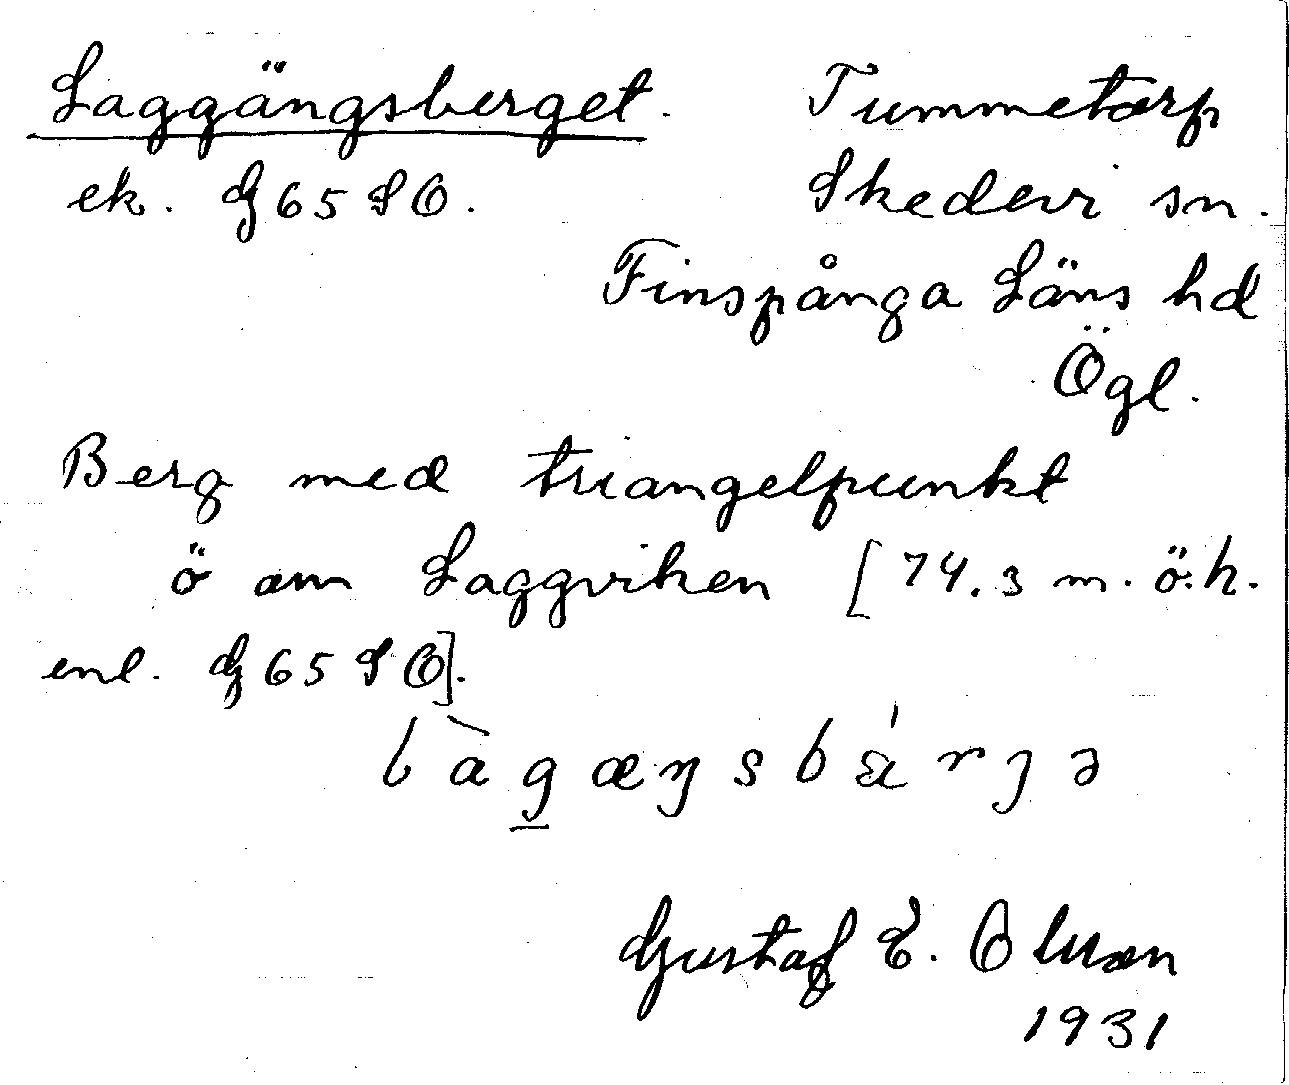 Laggängsberget. Tummetorp
ek. G 65 SO. Skedevi sn.
Finspånga Läns hd
Ögl.
Berg med triangelpunkt
ö om Laggviken [74.3 m. ö.h.
enl. G 65 SO].
làgæŋsbárjə
Gustaf E. Olsson
1931